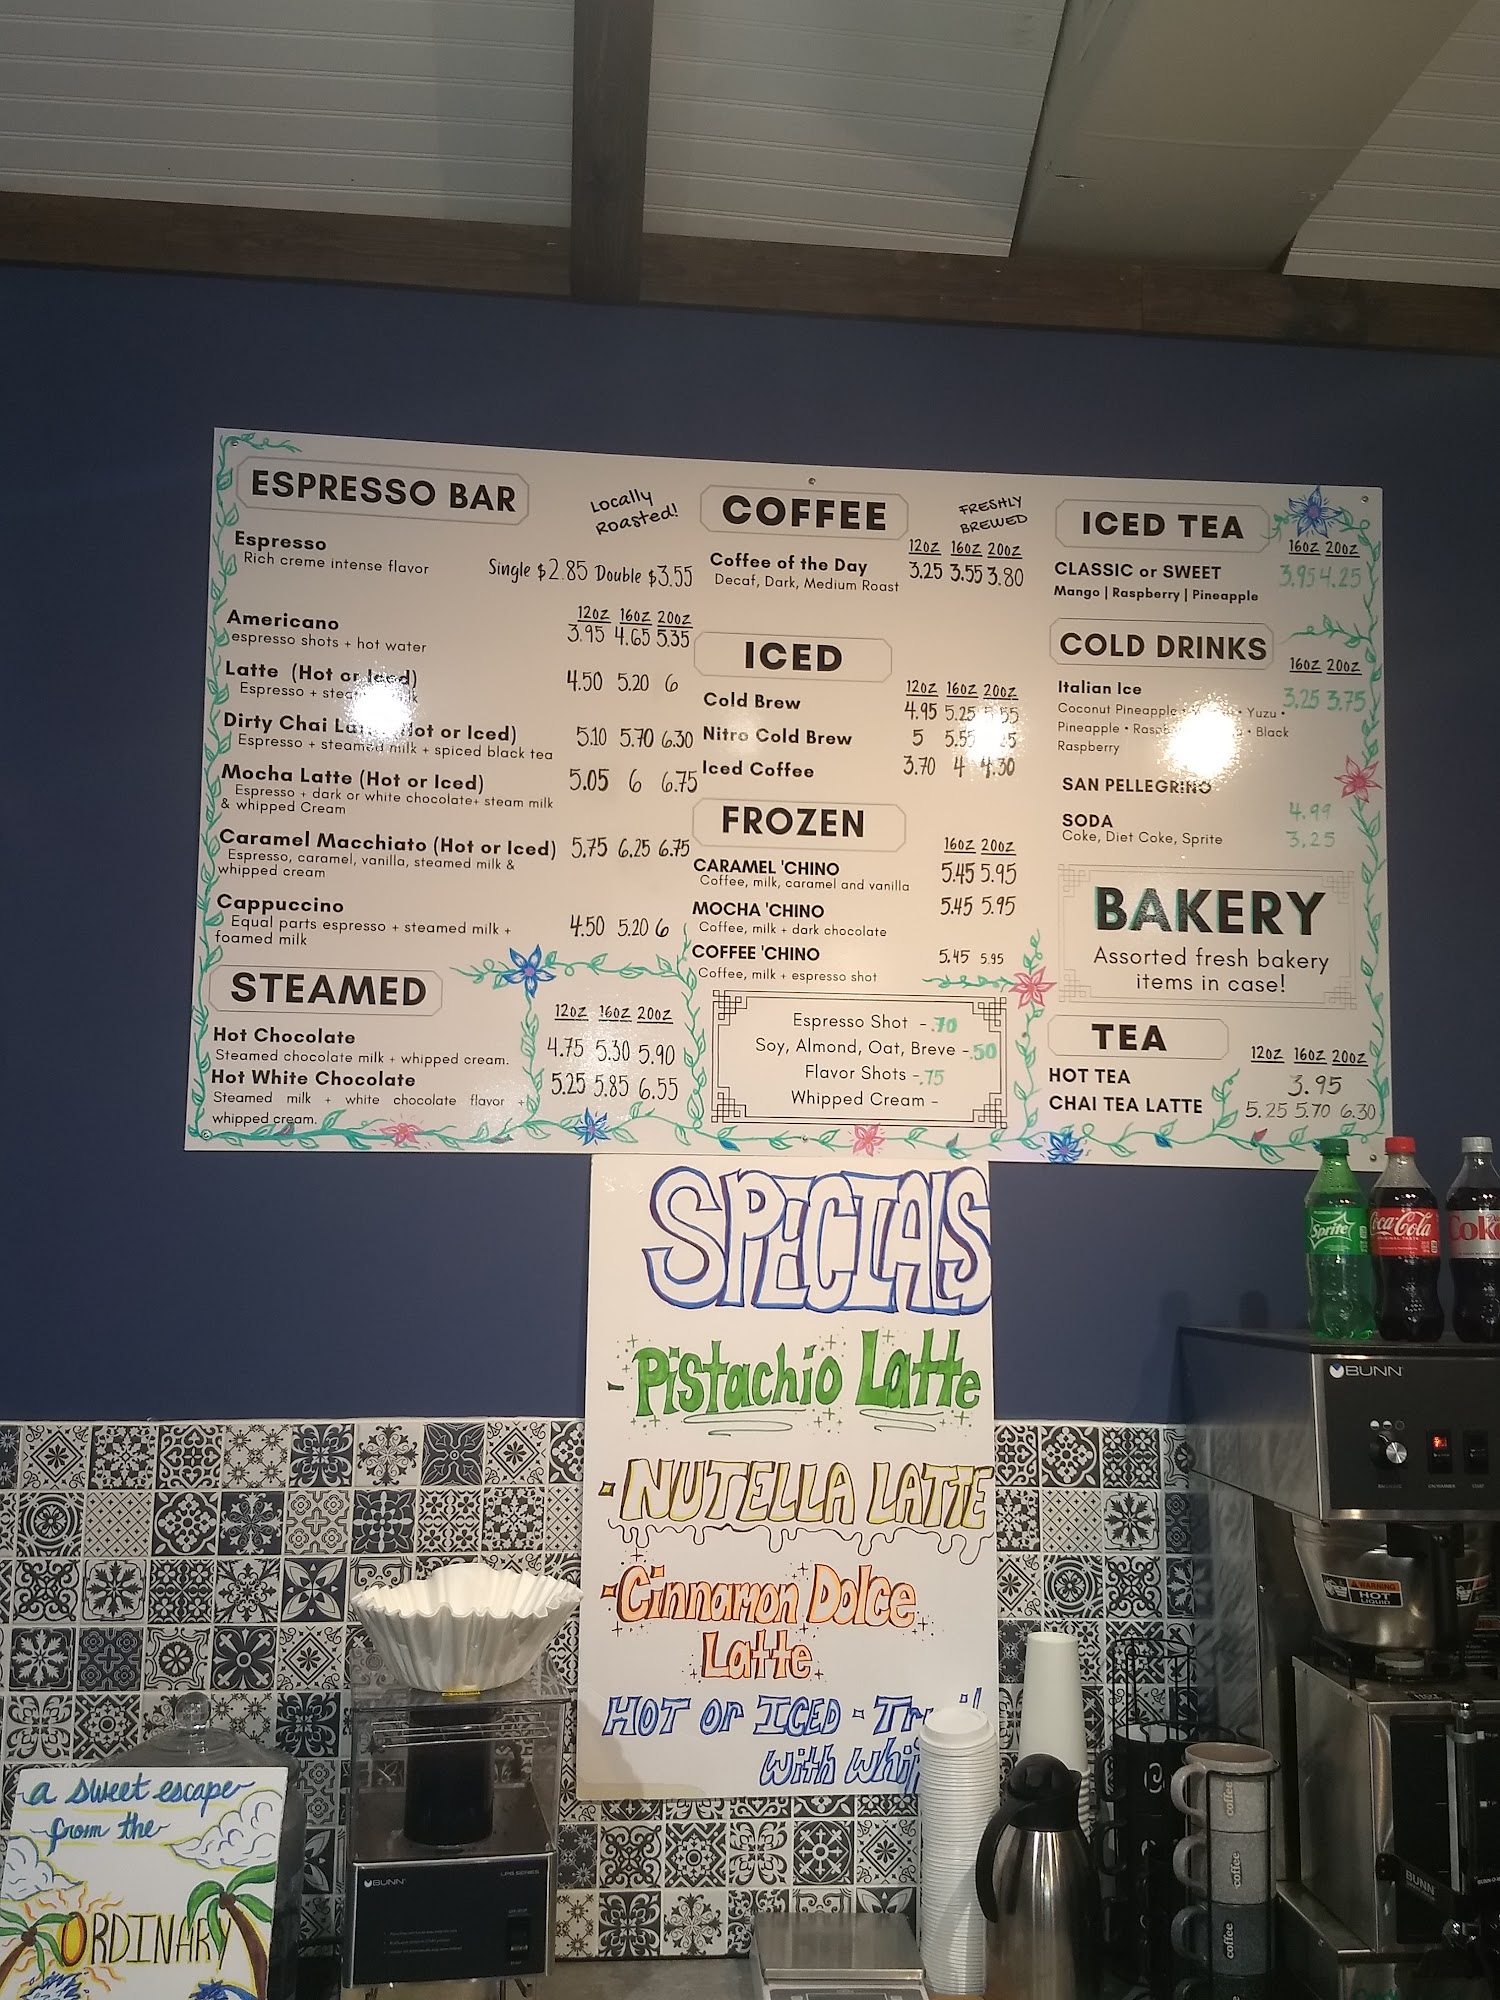 ESPRESSO BAR
Locally
Roasted!
Espresso
Rich creme intense flavor
Single $2.85 Double $3.55
12oz 16oz 20oz
Americano 3.95 4.65 5.35
espresso shots + hot water
Latte (Hot or Iced) 4.50 5.20 6
Espresso + steam
Dirty Chai (Hot or Iced) 5.10 5.70 6.30
Espresso + steamed milk + spiced black tea
Mocha Latte (Hot or Iced) 5.05 6 6.75
Espresso + dark or white chocolate+ steam milk
& whipped Cream
Caramel Macchiato (Hot or Iced) 5.75 6.25 6.75
Espresso, caramel, vanilla, steamed milk &
whipped cream
Cappuccino 4.50 5.20 6
Equal parts espresso + steamed milk +
foamed milk
STEAMED
12oz 16oz 20oz
Hot Chocolate 4.75 5.30 5.90
Steamed chocolate milk + whipped cream.
Hot White Chocolate 5.25 5.85 6.55
Steamed milk + white chocolate flavor +
whipped cream.
COFFEE
FRESHLY
BREWED
12oz 16oz 20oz
Coffee of the Day 3.25 3.55 3.80
Decaf, Dark, Medium Roast
ICED
12oz 16oz 20oz
Cold Brew 4.95 5.25
Nitro Cold Brew 5 5.55
Iced Coffee 3.70 4 4.30
FROZEN
16oz 20oz
CARAMEL 'CHINO 5.45 5.95
Coffee, milk, caramel and vanilla
MOCHA 'CHINO 5.45 5.95
Coffee, milk + dark chocolate
COFFEE 'CHINO 5.45 5.95
Coffee, milk + espresso shot
Espresso Shot - .70
Soy, Almond, Oat, Breve - .50
Flavor Shots - .75
Whipped Cream -
ICED TEA
16oz 20oz
CLASSIC or SWEET 3.95 4.25
Mango | Raspberry | Pineapple
COLD DRINKS
16oz 20oz
Italian Ice 3.25 3.75
Coconut Pineapple • Yuzu •
Pineapple • • Black
Raspberry
SAN PELLEGRINO
4.99
SODA
Coke, Diet Coke, Sprite 3.25
BAKERY
Assorted fresh bakery
items in case!
TEA
12oz 16oz 20oz
HOT TEA 3.95
CHAI TEA LATTE 5.25 5.70 6.30
SPECIALS
- Pistachio Latte
- NUTELLA LATTE
- Cinnamon Dolce
Latte
HOT or ICED -
with
Sprite
Coca-Cola
Coke
BUNN
WARNING
HOT
LIQUID
a sweet escape
from the
ORDINARY
BUNN
LPG SERIES
coffee
coffee
coffee
BUNN